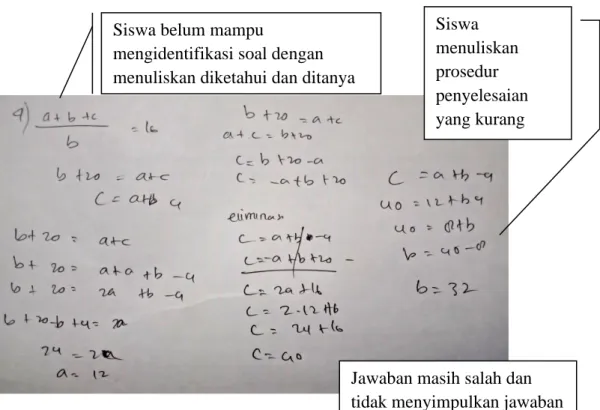 Siswa belum mampu
mengidentifikasi soal dengan
menuliskan diketahui dan ditanya
Siswa
menuliskan
prosedur
penyelesaian
yang kurang
a+b+c
b
= 16
b+20 = a+c
C = a+b 4
b+20 = a+c
b+20 = a+a+b-4
b+20 = 2a +b-4
b+20-b+4 = 2a
24 = 2a
a = 12
b+20 = a+c
a+c = b+20
C = b+20-a
C = -a+b+20
eliminasi
C = a+b-4
C = -a+b+20 -
C = 2a+16
C = 2.12+16
C = 24+16
C = 40
C = a+b-4
40 = 12+b4
40 = 8+b
b = 40-8
b = 32
Jawaban masih salah dan
tidak menyimpulkan jawaban